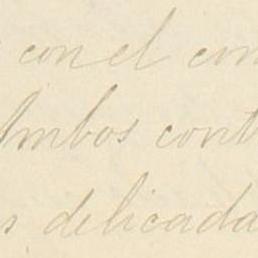 con el con
Ambos cont
s delicada